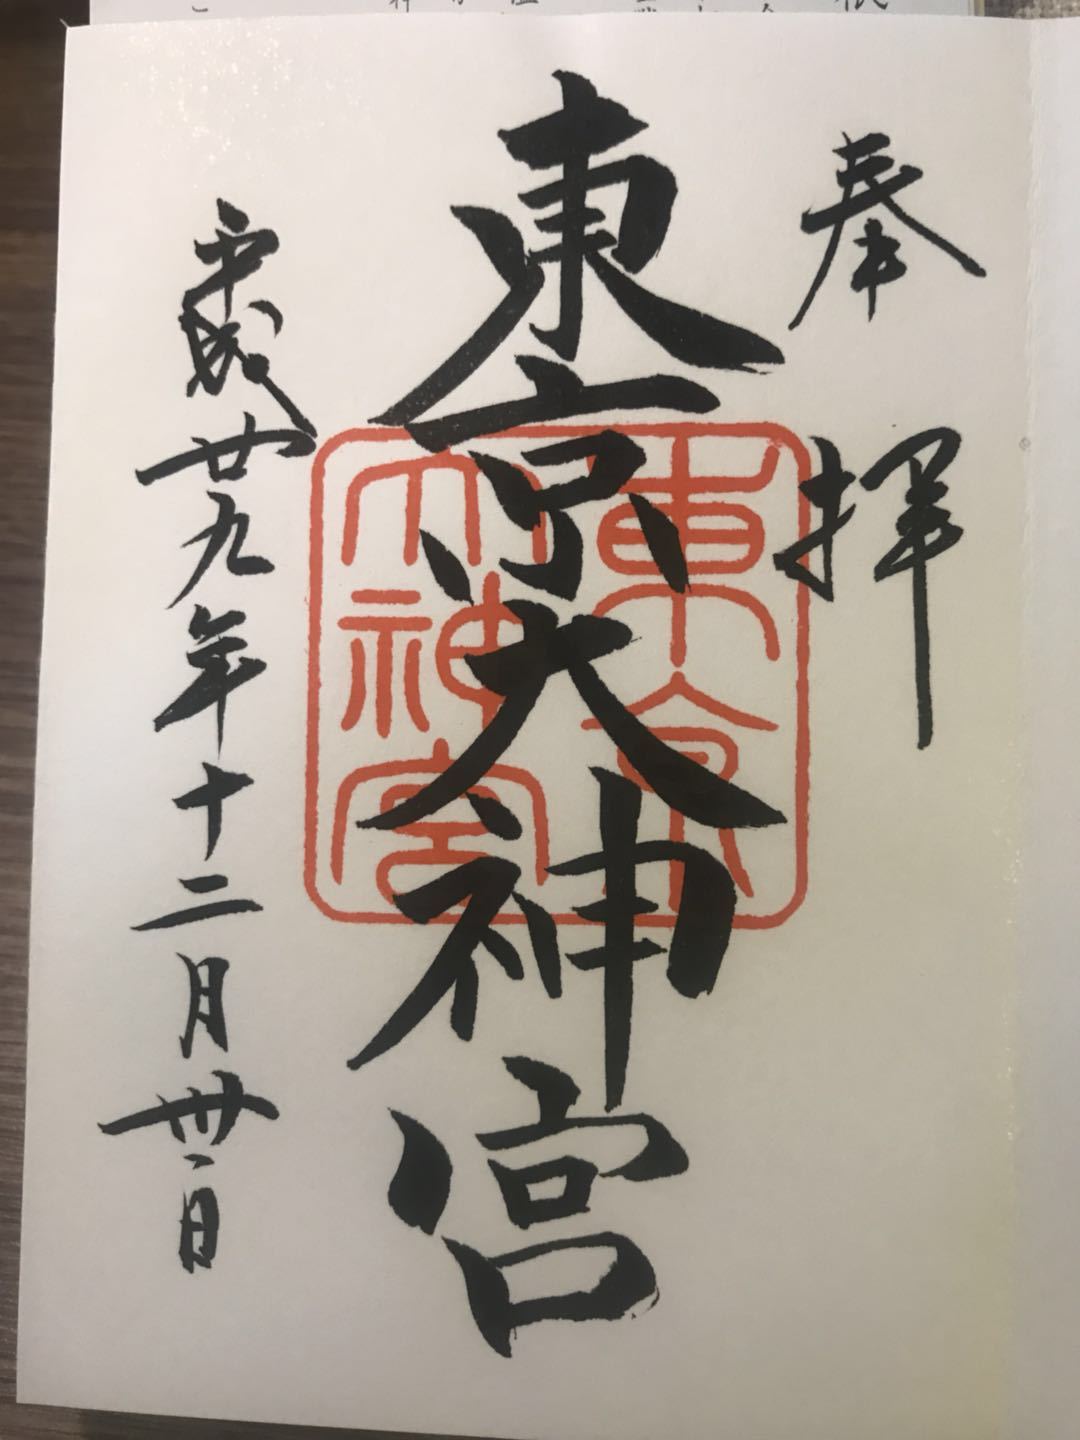 奉拝
東京大神宮
東京
大神宮
平成廿九年十二月卅一日